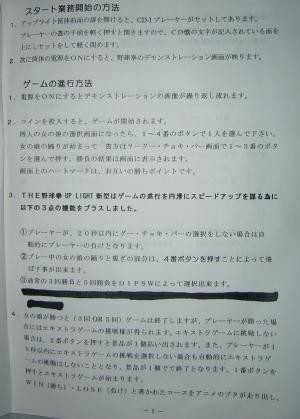 スタート業務開始の方法
1. アップライト筐体前面の扉を開けると、CD-Iプレーヤーがセットしてあります。
プレーヤーの蓋の手前を軽く押すと開きますので、CD盤の文字が記入されている面を
上にしセットをして軽く閉めます。
2. 次に筐体の電源をONにすると、野球拳のデモンストレーション画面が映ります。
ゲームの進行方法
1. 電源をONにするとデモンストレーションの画像が繰り返し流れます。
2. コインを投入すると、ゲームが開始されます。
四人の女の娘の選択画面になったら、1～4番のボタンで1人を選んで下さい。
女の娘の踊りが始まって
グー・チョキ・パー画面で1～3番のボタ
ンを選んで押す。勝負の結果は画面に表示されます。
画面上のハートマークは、お互いの勝ちポイントです。
3. THE野球拳 UP LIGHT 新型はゲームの進行を円滑にスピードアップを謀る為に
以下の3点の機能をプラスしました。
①プレーヤーが、20秒以内にグー・チョキ・パーの選択をしない場合は自
動的にプレーヤーの負けとなります。
②プレーヤー中の女の娘の踊りと脱ぎの部分は、4番ボタンを押すことによって飛
ばす事が出来ます。
③通常の3回勝負と5回勝負をDIPSWによって選択出来ます。
4. 女の娘が勝つと(3回OR5回)ゲームは終了しますが、プレーヤーが勝った場
合にはエキストラゲームの挑戦権が得られます。エキストラゲームに挑戦しない
場合は、2番ボタンを押すと景品が1個払い出されます。また、プレーヤーが1
5秒以内にエキストラゲームの挑戦を選択しない場合も自動的にエキストラゲ
ームの挑戦はしないこととなり、景品が1個でて終了となります。1番ボタンを
押すとエキストラゲームが始まります。
WIN(勝ち)・LOSE(負け)と書かれたコースをアニメのブタが走り出し、
- 1 -